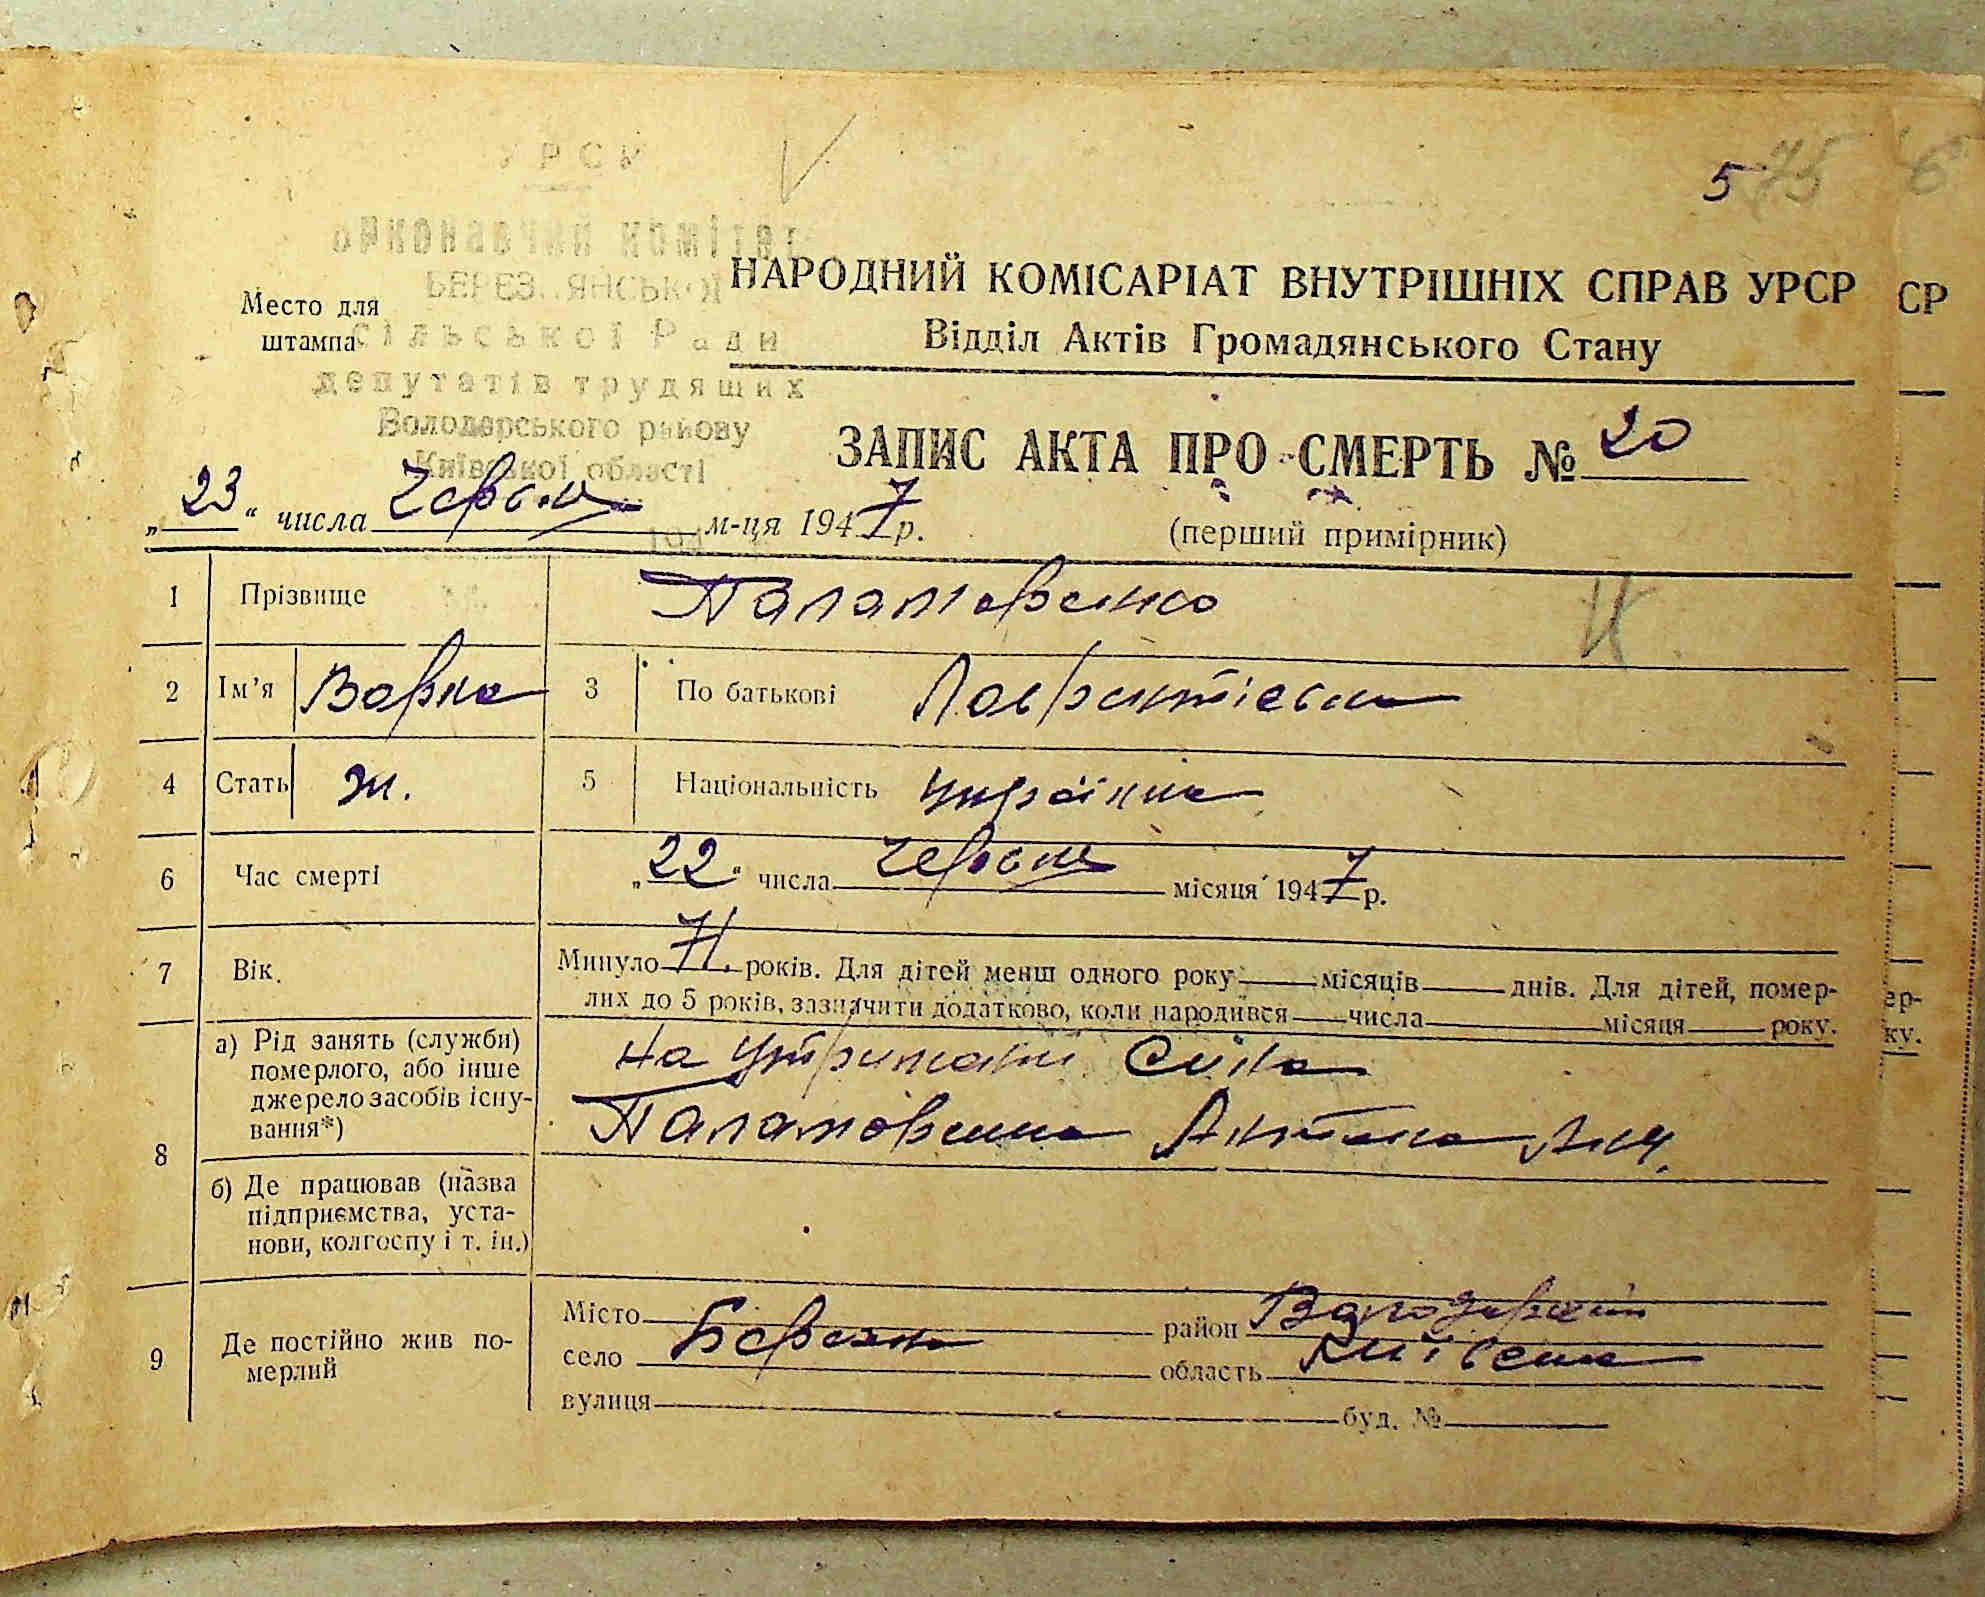 УРСР
5 75
виконавчий комітет
БЕРЕЗ..ЯНСЬКОЇ
НАРОДНИЙ КОМІСАРІАТ ВНУТРІШНІХ СПРАВ УРСР
СР
Место для
штампа
сільської Ради
Відділ Актів Громадянського Стану
депутатів трудящих
Володарського району
Київської області
ЗАПИС АКТА ПРО СМЕРТЬ № 20
„23“ числа червня м-ця 1947 р.
(перший примірник)
194
1 Прізвище Паламаренко
2 Ім’я Варка 3 По батькові Лаврентієвна
4 Стать ж. 5 Національність українка
6 Час смерті „22“ числа червня місяця 1947 р.
7 Вік. Минуло 71. років. Для дітей менш одного року місяців днів. Для дітей, помер-
лих до 5 років, зазначити додатково, коли народився числа місяця року.
ер-
ку.
8 а) Рід занять (служби)
померлого, або інше
джерело засобів існу-
вання*)
на утриманні сина
Паламаренка Антона
б) Де працював (назва
підприємства, уста-
нови, колгоспу і т. ін.)
9 Де постійно жив по-
мерлий
Місто район Володарський
село Березна область Київська
вулиця буд. №